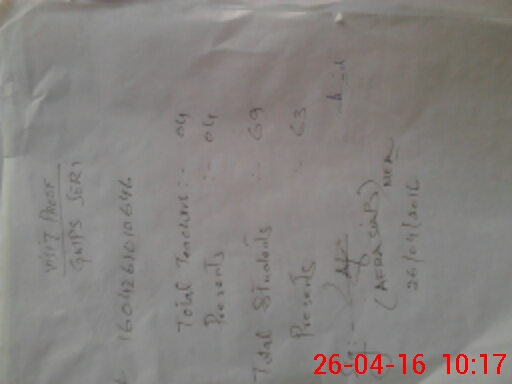 VISIT PROOF
GMPS SERI
1604261010646
Total Teachers :- 04
Presents :- 04
Total Students :- 69
Presents :- 63
26/04/2016
26-04-16 10:17